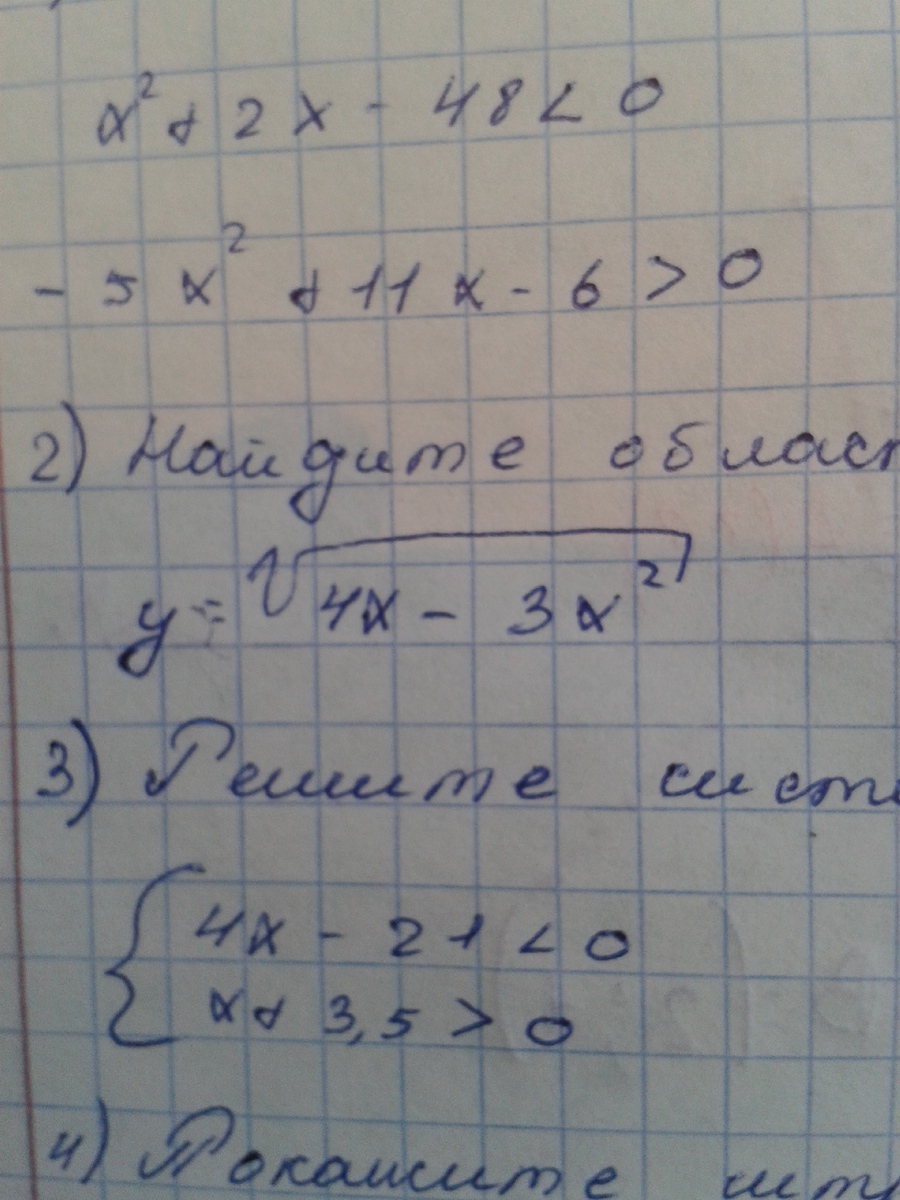 x² + 2x - 48 < 0
- 5x² + 11x - 6 > 0
2) Найдите област
y = √(4x - 3x²)
3) Решите систе
{ 4x - 21 < 0
x + 3,5 > 0
4) Покажите шт